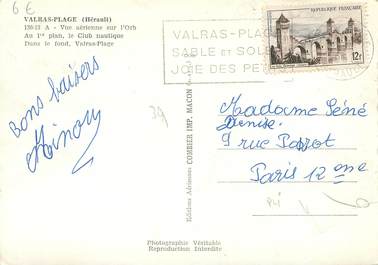 6 €
VALRAS-PLAGE (Hérault)
136-11 A - Vue aérienne sur l'Orb
Au 1er plan, le Club nautique
Dans le fond, Valras-Plage
VALRAS-PLAGE
SABLE et SOLE
JOIE DES PE
12f
Bons baisers
Minou
39
Editions Aériennes COMBIER IMP. MACON
Madame Séné
Denise
9 rue Parrot
Paris 12 eme
Photographie Véritable
Reproduction Interdite